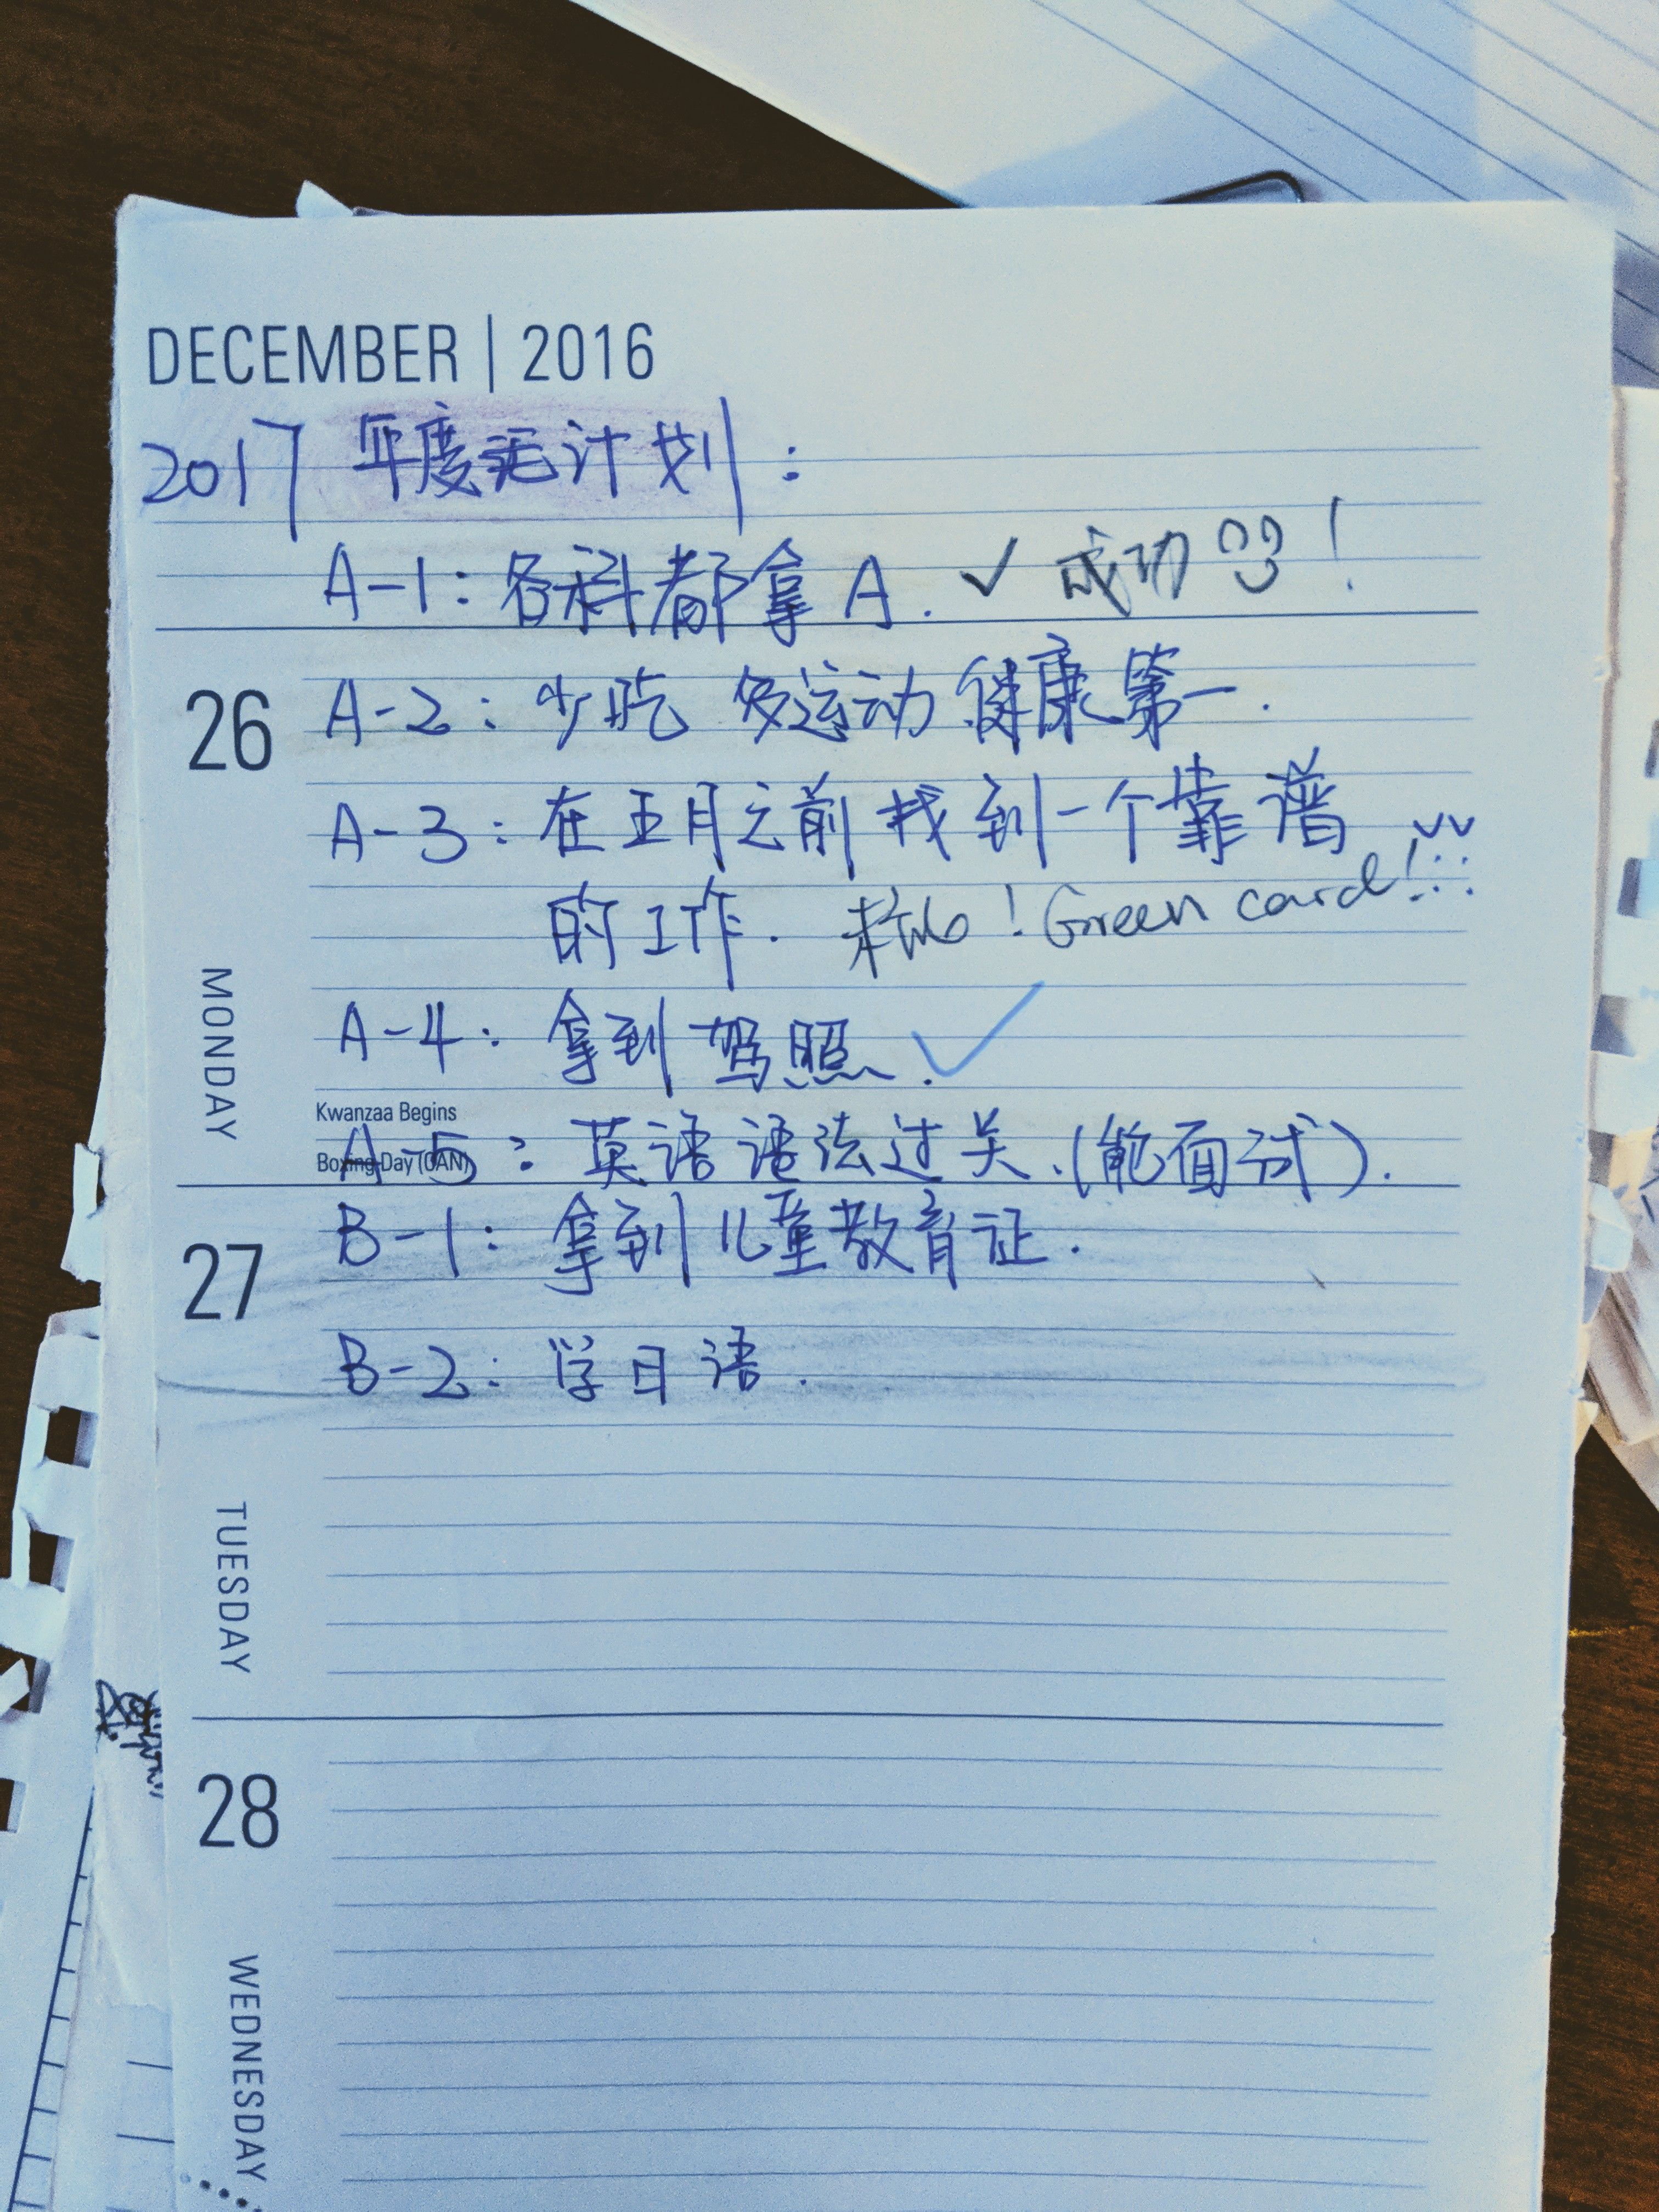 DECEMBER | 2016
2017 年度计划:
A-1: 各科都拿A. ✓ 成功 !
26
A-2: 少吃 多运动 健康第一.
A-3: 在五月之前找到一个靠谱
的工作. ! Green card!
MONDAY
A-4: 拿到驾照. ✓
Kwanzaa Begins
Boxing Day (CAN)
A-5: 英语语法过关.(能面试).
27
B-1: 拿到儿童教育证.
B-2: 学日语.
TUESDAY
28
WEDNESDAY